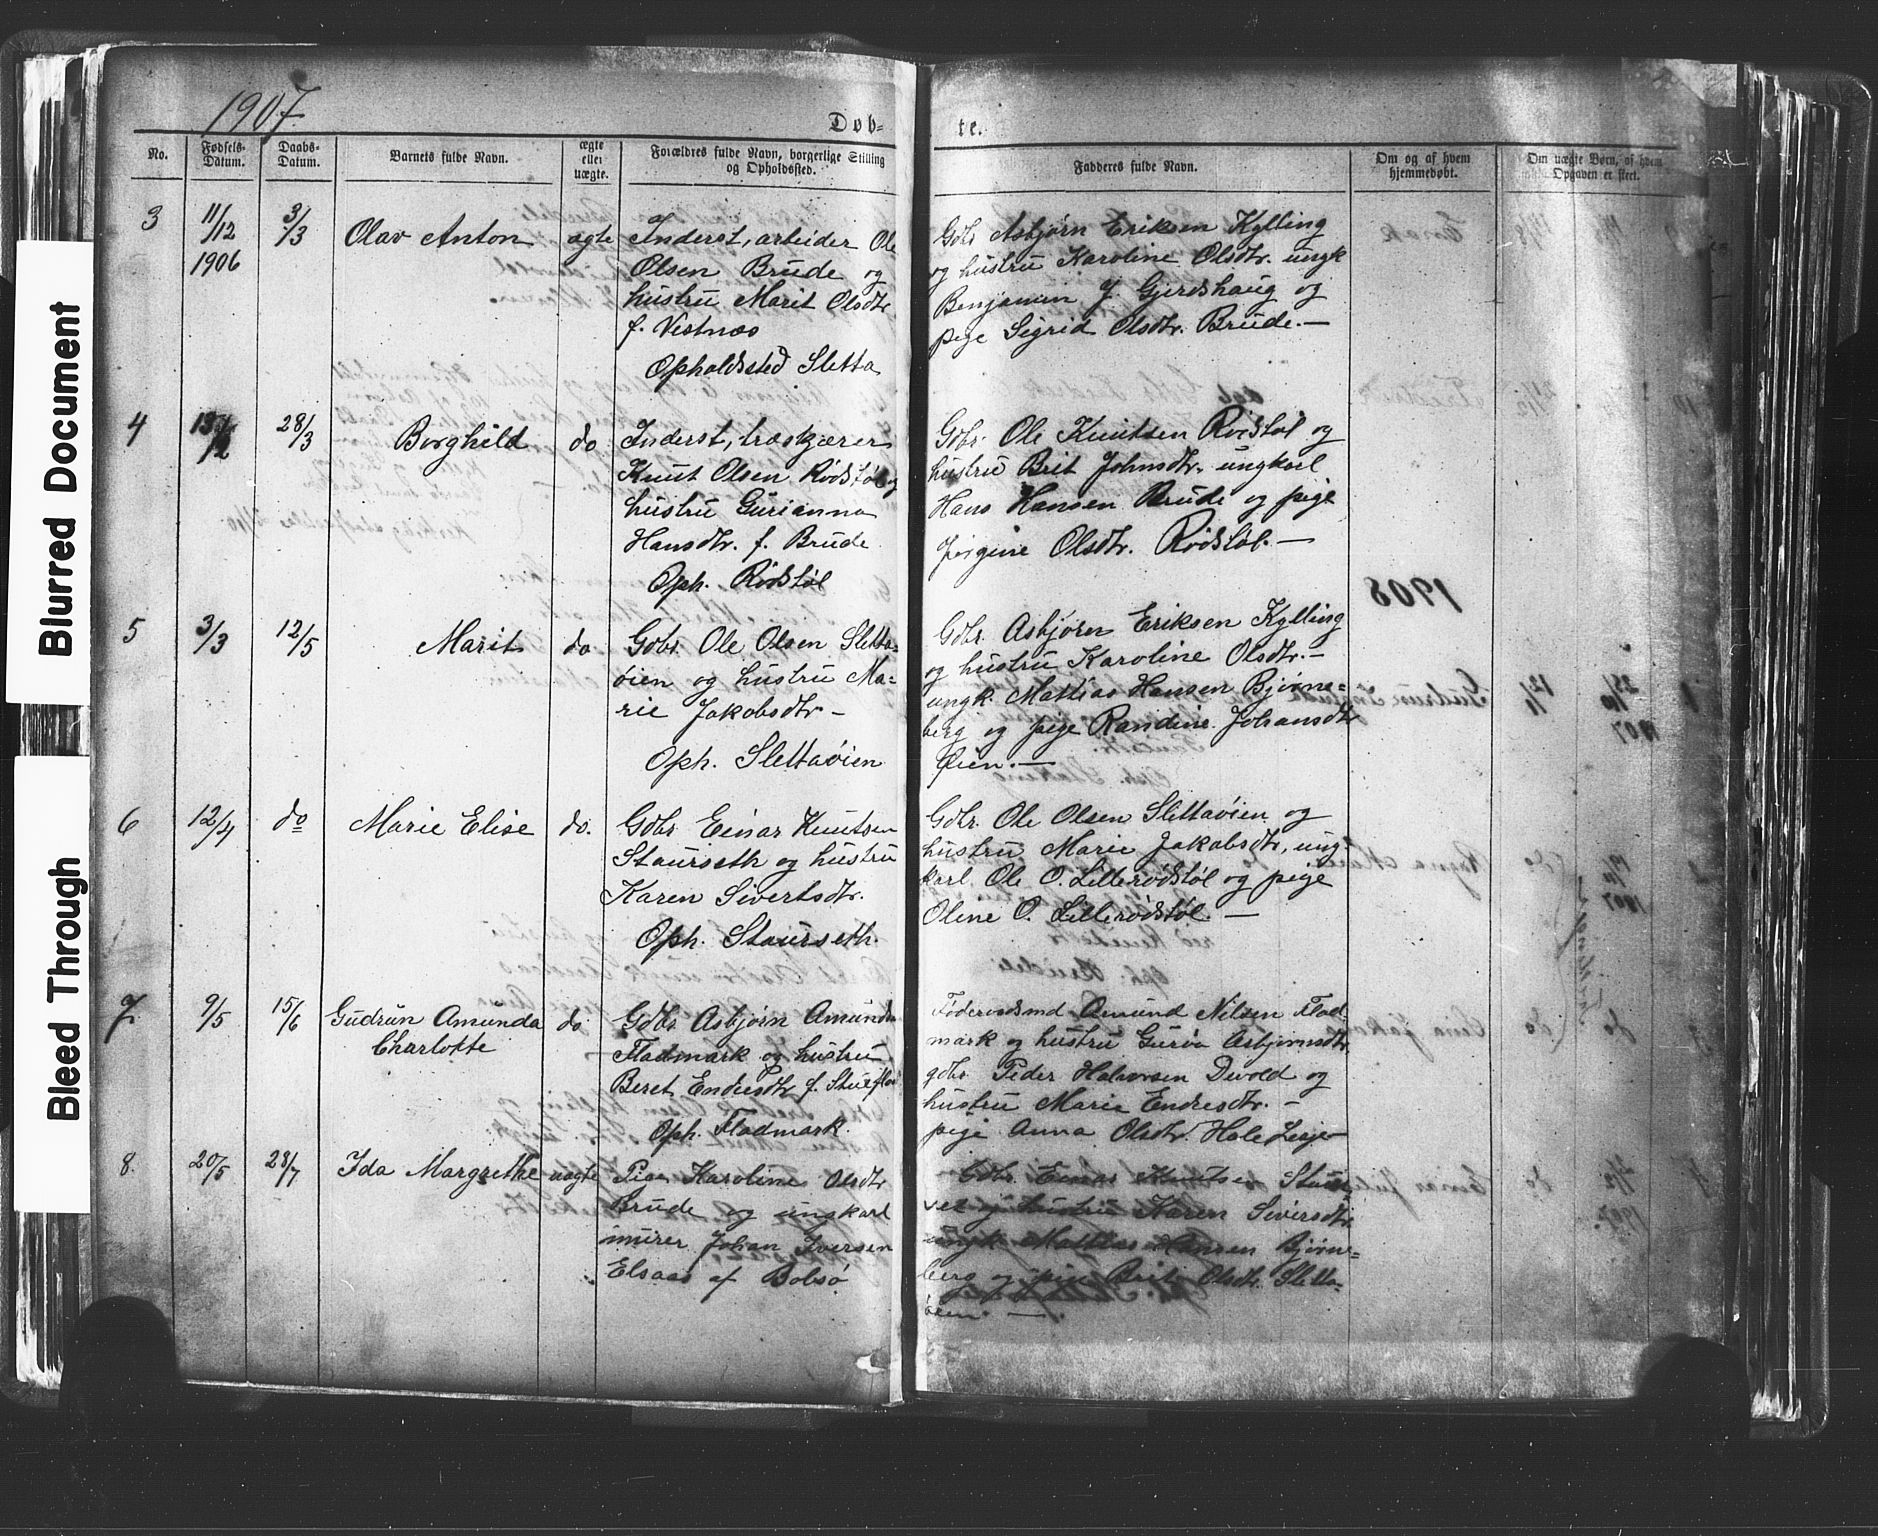 1907
Døb-
te.
No.
Fødsels-
Datum.
Daabs-
Datum.
Barnets fulde Navn.
ægte
eller
uægte.
Forældres fulde Navn, borgerlige Stilling
og Opholdssted.
Fadderes fulde Navn.
Om og af hvem
hjemmedøbt.
Om uægte Børn, af hvem
Opgaven er skeet.
3
11/12
1906
3/3
Olav Anton
ægte
Inderst, arbeider Ole
Olsen Brude og
hustru Marit Olsdtr
f. Vestnæs
Opholdssted Sletta
Gbr Asbjørn Eriksen Kylling
og hustru Karoline Olsdtr. ungk
Benjamin J. Gjerdshaug og
pige Sigrid Olsdtr. Brude.—
4
28/3
Borghild
do
Inderst, træskjærer
Knut Olsen Rødstøl og
hustru Gurianna
Hansdtr. f. Brude
Oph. Rødstøl
Gbr. Ole Knutsen Rødstøl og
hustru Brit Johnsdtr. ungkarl
Hans Hansen Brude og pige
Jørgine Olsdtr. Rødstøl.—
5
3/3
12/5
Marit
do
Gbr. Ole Olsen Sletta-
øien og hustru Ma-
rie Jakobsdtr—
Oph. Slettaøien
Gbr. Asbjørn Eriksen Kylling
og hustru Karoline Olsdtr.—
ungk. Mattias Hansen Bjørne-
berg og pige Randine Johansdtr
Øien.—
6
12/4
do
Marie Elise
do.
Gbr Einar Knutsen
Staurseth og hustru
Karen Sivertsdtr.
Oph. Staurseth.
Gbr. Ole Olsen Slettaøien og
hustru Marie Jakobsdtr, ung-
karl Ole O. Lillerødstøl og pige
Oline O. Lillerødstøl.—
7
9/5
15/6
Gudrun Amunda
Charlotte
do.
Gbr Asbjørn Amundsen
Fladmark og hustru
Beret Endresdtr f. Stueflot
Oph. Fladmark.
Føderaadsmd Amund Nilsen Flad-
mark og hustru Guroa Asbjørnsdtr,
gbr Peder Halvorsen Devold og
hustru Marie Endresdtr.—
pige Anna Olsdtr. Hole Lesje—
8.
20/5
28/7
Ida Margrethe
uægte
Pige Karoline Olsdtr
Brude og ungkarl
murer Johan Iversen
Elsaas af Bolsø
Gbr. Einar Knutsen Staur-
set og hustru Karen Siversdtr.
ungk Mattias Hansen Bjørne-
berg og pige Brit Olsdtr. Sletta-
øien.—
1908
Blurred Document
Bleed Through